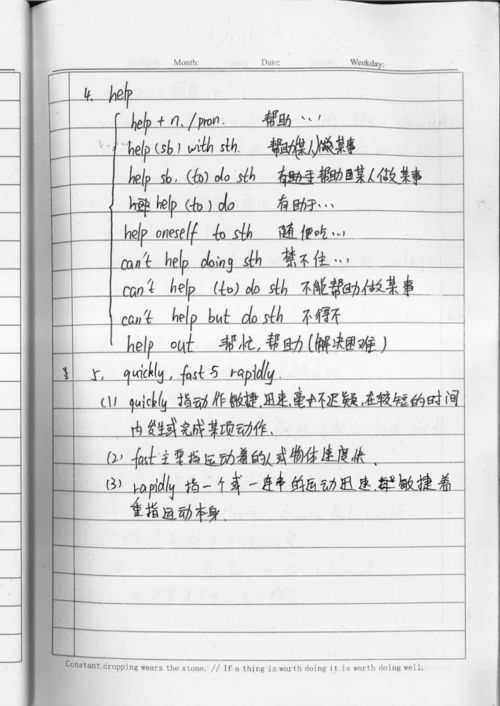 Month: Date: Weekday:
4. help
help + n. /pron. 帮助…
help (sb) with sth. 帮助(某人)做某事
help sb. (to) do sth 帮助某人做某事
help (to) do 有助于…
help oneself to sth 随便吃…
can't help doing sth 禁不住…
can't help (to) do sth 不能帮助做某事
can't help but do sth 不得不
help out 帮忙,帮助(解决困难)
5. quickly, fast 5 rapidly.
(1) quickly 指动作敏捷,迅速,毫不迟疑,在较短的时间
内发生或完成某项动作.
(2) fast 主要指运动着的人或物体速度快.
(3) rapidly 指一个或一连串的运动迅速.敏捷着
重指运动本身.
Constant dropping wears the stone. // If a thing is worth doing it is worth doing well.